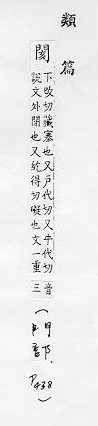 類篇
閡
下改切藏塞也又戶代切又牛代切
說文外閉也又紇得切礙也文一重
音
三
P438